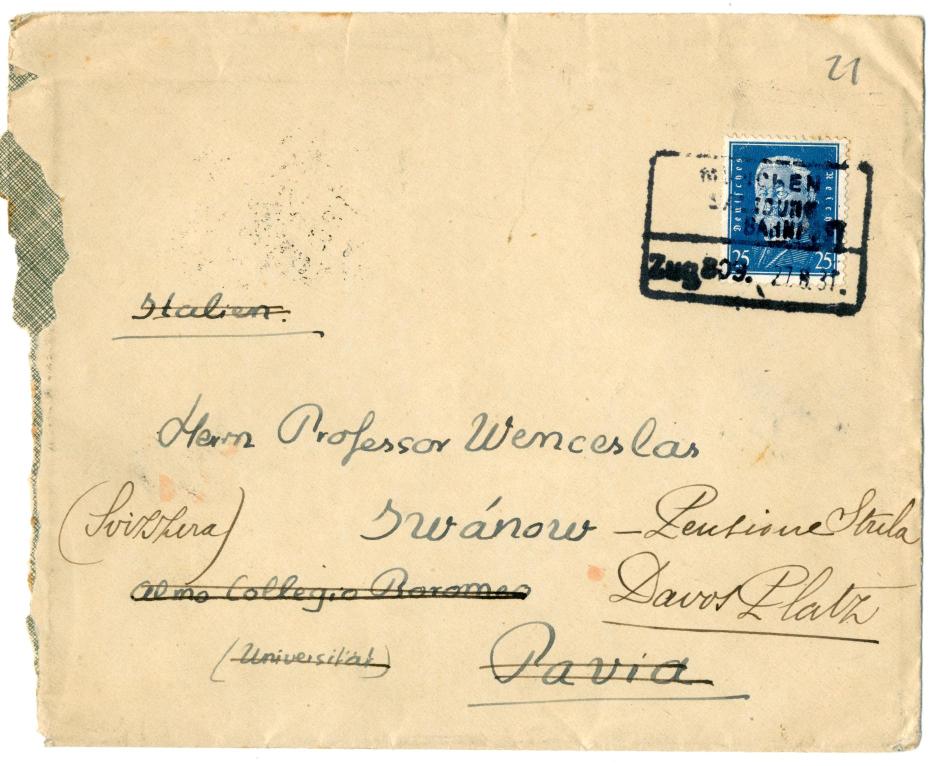 21
Deutsches Reich
25 25
MÜNCHEN
SALZBURG
BAHNPOST
Zug 809. 27.8.31.
Italien.
Herrn Professor Wenceslas
(Svizzera) Iwánow – Pensione Strela
Almo Collegio Boromeo Davos Platz
(Universität) Pavia